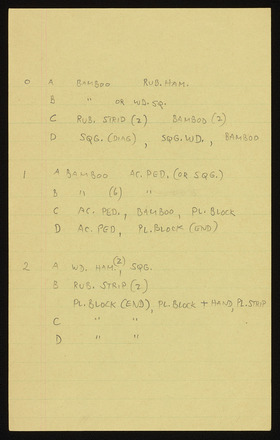 0 A BAMBOO RUB. HAM.
B " OR WD. SQ.
C RUB. STRIP (2) BAMBOO (2)
D SQG. (DIAG), SQG. WD., BAMBOO
1 A BAMBOO AC. PED. (OR SQG.)
B " (6) "
C AC. PED., BAMBOO, PL. BLOCK
D AC. PED, PL. BLOCK (END)
2 A WD. HAM. (2), SQG.
B RUB. STRIP (2)
PL. BLOCK (END), PL. BLOCK + HAND, PL. STRIP
C " "
D " "